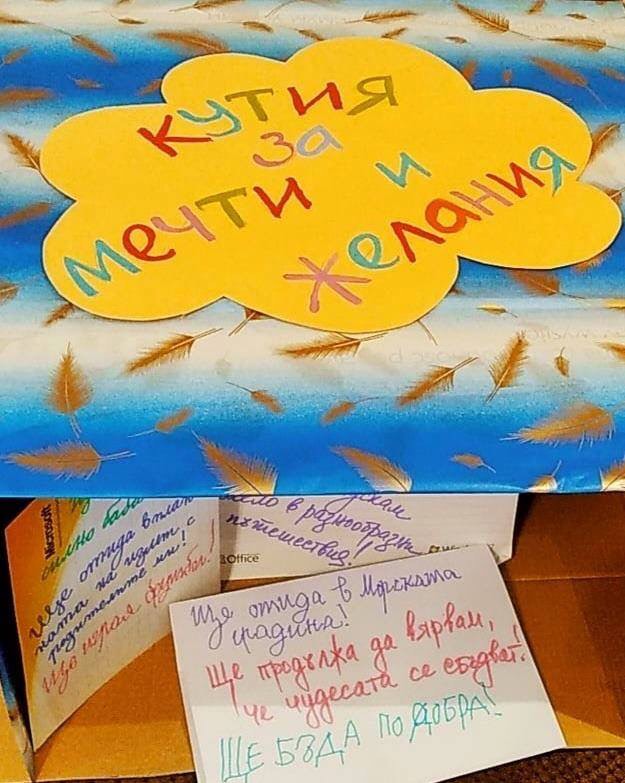 КУТИЯ
за
мечти и
желания
силно баба
Ще отида в план
ната на излет с
родителите ми!
Що играя футбол!
Microsoft
в разнообразни
пътешествия!
Office
Ще отида в Морската
градина!
Ще продължа да вярвам,
че чудесата се сбъдват!
ЩЕ БЪДА ПО ДОБРА!